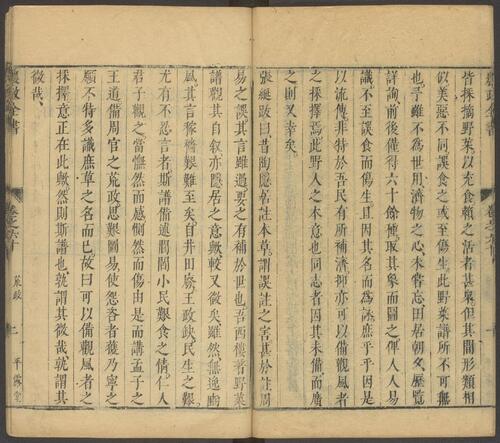 皆採摘野菜以充食賴之活者甚衆但其間形類相
似美惡不同誤食之或至傷生此野菜譜所不可無
也予雖不爲世用濟物之心未嘗忘田居朝夕歷覽
詳詢前後僅得六十餘種取其象而圖之俾人人易
識不至誤食而傷生且因其名而爲詠庶乎乎因是
以流傳非特於吾民有所補濟抑亦可以備觀風者
之採擇焉此野人之本意也同志者因其未備而廣
之則又幸矣
張綖跋曰昔陶隱居註本草謂誤註之害甚於註周
易之誤其言雖過要之有補於世也吾西樓著野菜
譜觀其自叙亦隱居之意歟較又微矣雖然無逸豳
風其言稼穡艱難至矣自井田廢王政缺民生之艱
尤有不忍言者斯譜備述閭閻小民艱食之情仁人
君子觀之當憮然而感惻然而傷由是而講孟子之
王道備周官之荒政思艱圖易使怨咨者獲乃寧之
願不特多識庶草之名而已故曰可以備觀風者之
採擇意正在此歟然則斯譜也孰謂其微哉孰謂其
微哉
農政全書 卷之六十 荒政 二 平露堂